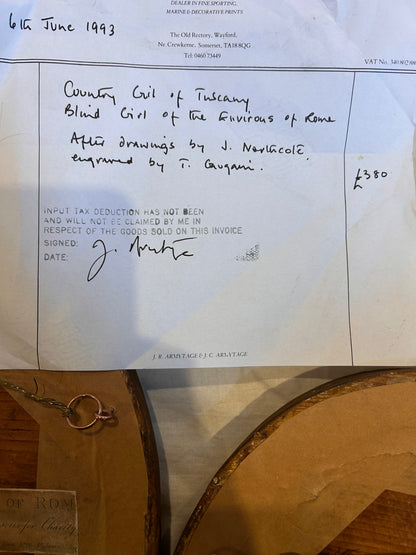 DEALER IN FINE SPORTING,
MARINE & DECORATIVE PRINTS
6th June 1993
The Old Rectory, Wayford,
Nr. Crewkerne, Somerset, TA18 8QG
Tel: 0460 73449
VAT No.
Country Gril of Tuscany
Blind Girl of the Environs of Rome
After drawings by J. Northcote.
engraved by T. Gaugain.
£380
INPUT TAX DEDUCTION HAS NOT BEEN
AND WILL NOT BE CLAIMED BY ME IN
RESPECT OF THE GOODS SOLD ON THIS INVOICE
SIGNED: J. Armytage
DATE:
J. R. ARMYTAGE & J. C. ARMYTAGE
OF ROM
for Charity